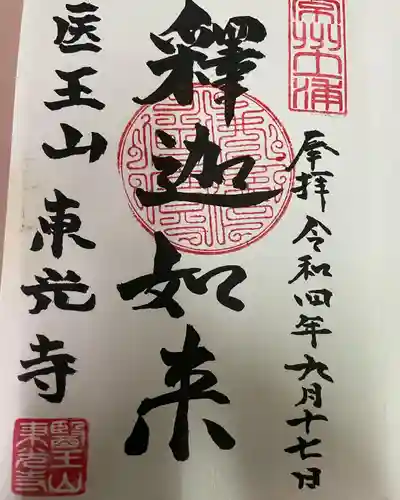 奉拝 令和四年九月十七日
釋迦如来
医王山 東光寺
常州土浦
醫王山
東光寺